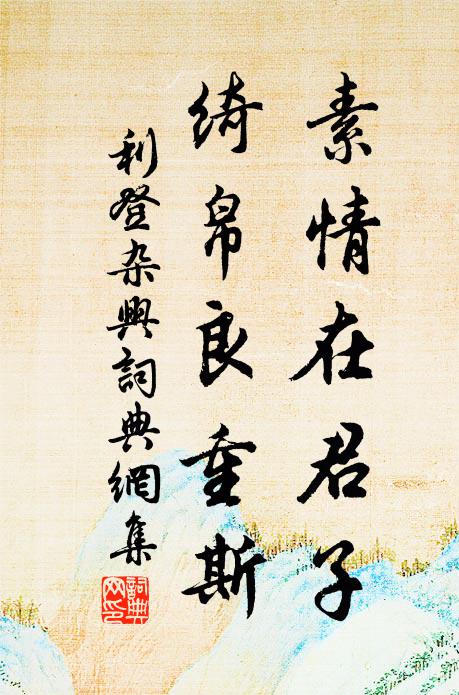 素情在君子
绮帛良重斯
利登杂興詞典網集
詞典